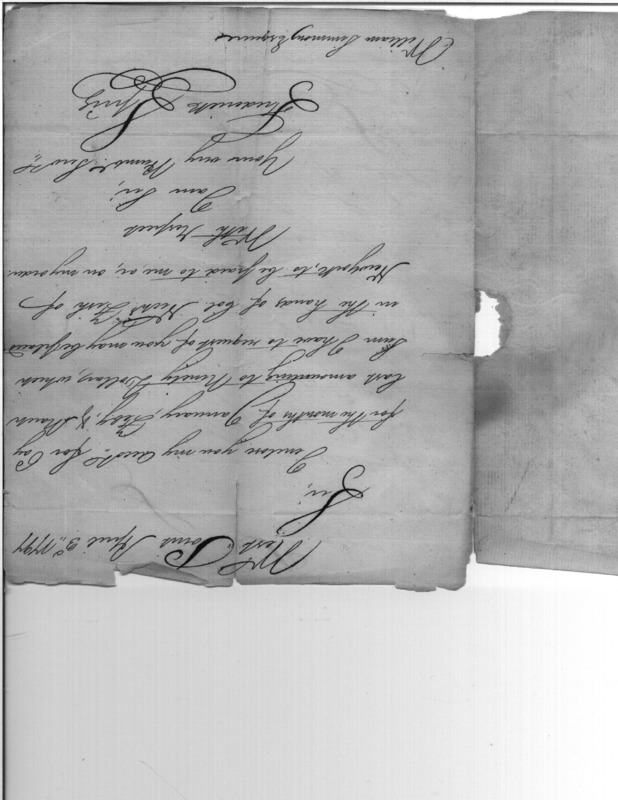 West Point April 3d, 1797
Sir,
Inclosed you my Acct. for Pay
for the months of January, Feby, & March
last amounting to Ninety Dollars, which
Sum I have to request of you may be placed
in the hands of Col. Nichs. Fish of
Newyork, to be paid to me, or, on my order
With respect
I am Sir,
Your very Humbl. Servt.
Frederick
William Simmons Esquire